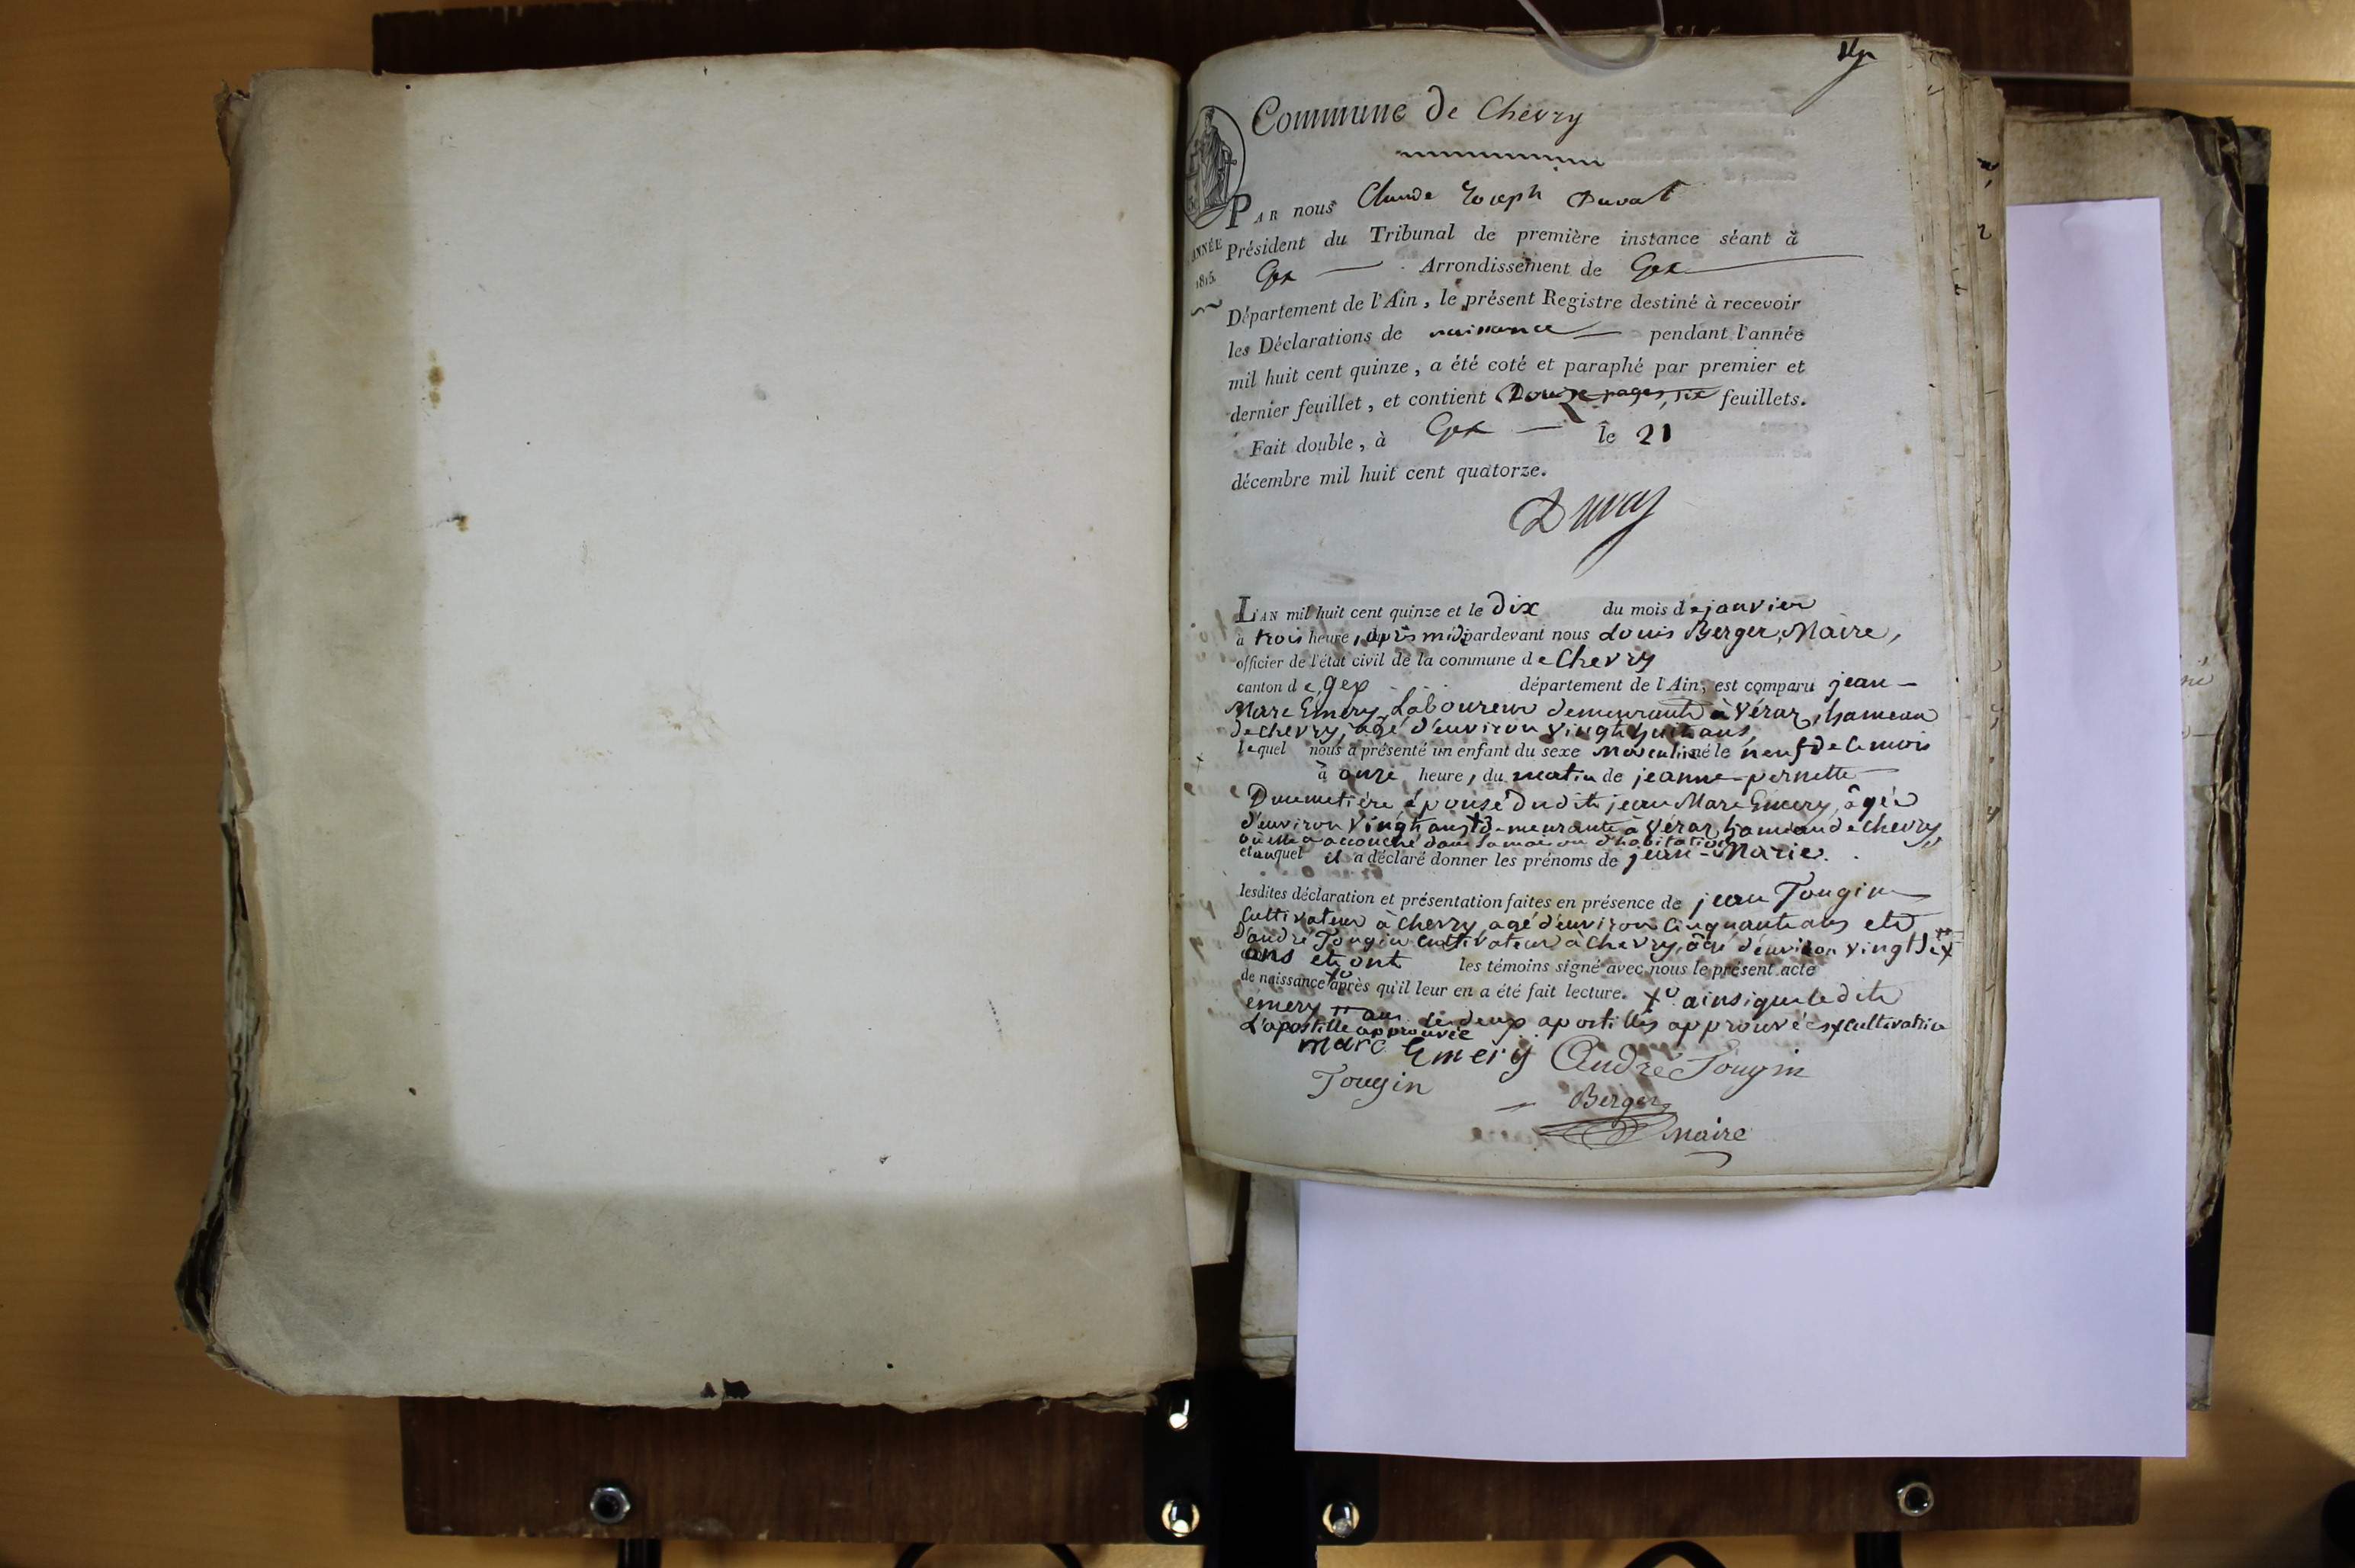 Commune de Chevry
PAR nous Claude Joseph Duval
ANNÉE
1815.
Président du Tribunal de première instance séant à
Gex Arrondissement de Gex
Département de l'Ain, le présent Registre destiné à recevoir
les Déclarations de naissance pendant l'année
mil huit cent quinze, a été coté et paraphé par premier et
dernier feuillet, et contient Douze pages, six feuillets.
Fait double, à Gex le 21
décembre mil huit cent quatorze.
Duval
L'AN mil huit cent quinze et le dix du mois de janvier
à trois heures après midi pardevant nous Louis Berger, Maire,
officier de l'état civil de la commune de Chevry
canton de gex département de l'Ain, est comparu jean-
Marc Emery, Laboureur demeurant à Véraz, hameau
de chevry, âgé d'environ vingt huit ans,
lequel nous a présenté un enfant du sexe masculin né le neuf de ce mois
à onze heures du matin de jeanne-pernette
Dumetière épouse dudit jean Marc Emery, âgée
d'environ vingt ans + demeurante à Véraz, hameau de chevry,
où elle a accouché dans sa maison d'habitation
et auquel il a déclaré donner les prénoms de jean-Marie.
lesdites déclaration et présentation faites en présence de jean Tougin
cultivateur à chevry agé d'environ cinquante ans et
d'andré Tougin cultivateur à chevry, âgé d'environ vingt six
ans et ont les témoins signé avec nous le présent acte
de naissance après qu'il leur en a été fait lecture. +° ainsi que ledit
emery les deux apostilles approuvées + cultivatrice
L'apostille approuvée
marc Emery André Tougin
Tougin
Berger
maire